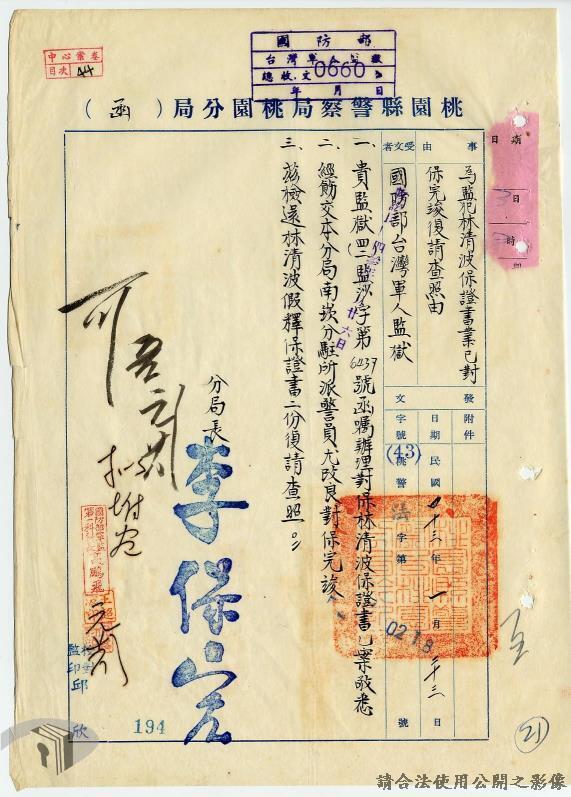 中心業卷
目次 44
國防部
台灣軍人監獄
總收文 0660
年 月 日
桃園縣警察局桃園分局（函）
事由
為監犯林清波保證書業已對
保完竣復請查照由
受文者
國防部台灣軍人監獄
附件
發文
日期 民國四十三年一月二十三日
字號 (43)桃警 字第 0218 號
一、貴監獄(四二)監 字第6437號函囑辦理對保林清波保證書乙案敬悉
廿六日
二、經飭交本分局南崁分駐所派警員尤改良對保完竣
三、茲檢還林清波假釋保證書二份復請查照。
分局長 李保
監印 邱
校對
欣
194
21
日期
日
時
請合法使用公開之影像